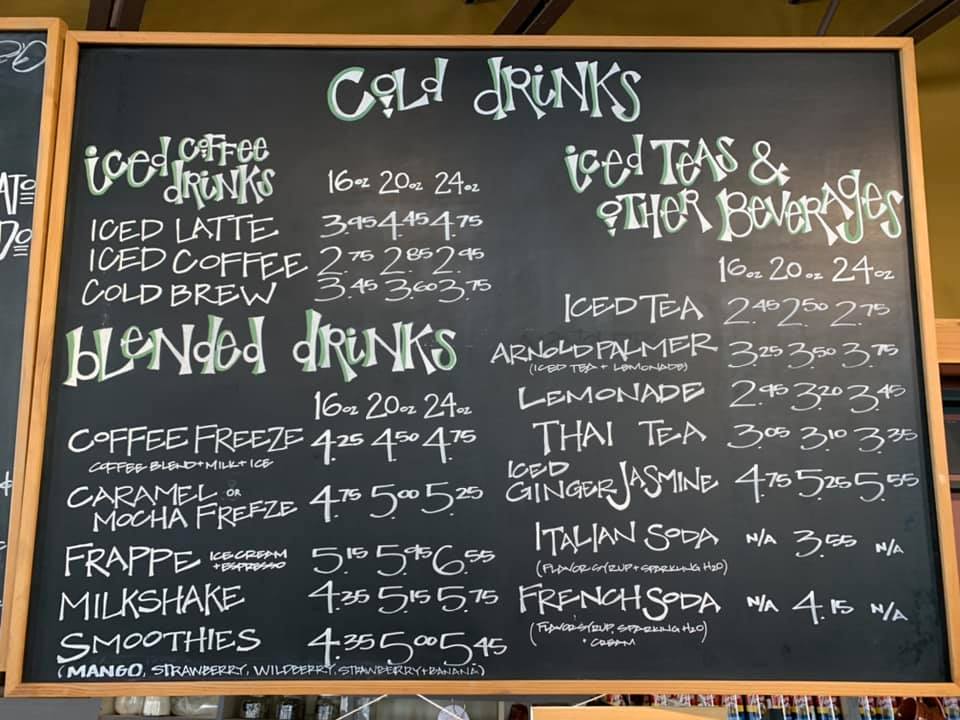 COLD DRINKS
ICED COFFEE DRINKS
16oz 20oz 24oz
ICED LATTE 3.95 4.45 4.75
ICED COFFEE 2.75 2.85 2.95
COLD BREW 3.45 3.60 3.75
BLENDED DRINKS
16oz 20oz 24oz
COFFEE FREEZE 4.25 4.50 4.75
COFFEE BLEND + MILK + ICE
CARAMEL OR
MOCHA FREEZE 4.75 5.00 5.25
FRAPPE ICE CREAM + ESPRESSO 5.15 5.95 6.55
MILKSHAKE 4.35 5.15 5.75
SMOOTHIES 4.35 5.00 5.45
(MANGO, STRAWBERRY, WILDBERRY, STRAWBERRY + BANANA)
ICED TEAS &
OTHER BEVERAGES
16oz 20oz 24oz
ICED TEA 2.45 2.50 2.75
ARNOLD PALMER 3.25 3.50 3.75
(ICED TEA + LEMONADE)
LEMONADE 2.95 3.20 3.45
THAI TEA 3.05 3.10 3.35
ICED
GINGER JASMINE 4.75 5.25 5.55
ITALIAN SODA N/A 3.55 N/A
(FLAVOR SYRUP + SPARKLING H2O)
FRENCH SODA N/A 4.15 N/A
(FLAVOR SYRUP, SPARKLING H2O)
+ CREAM